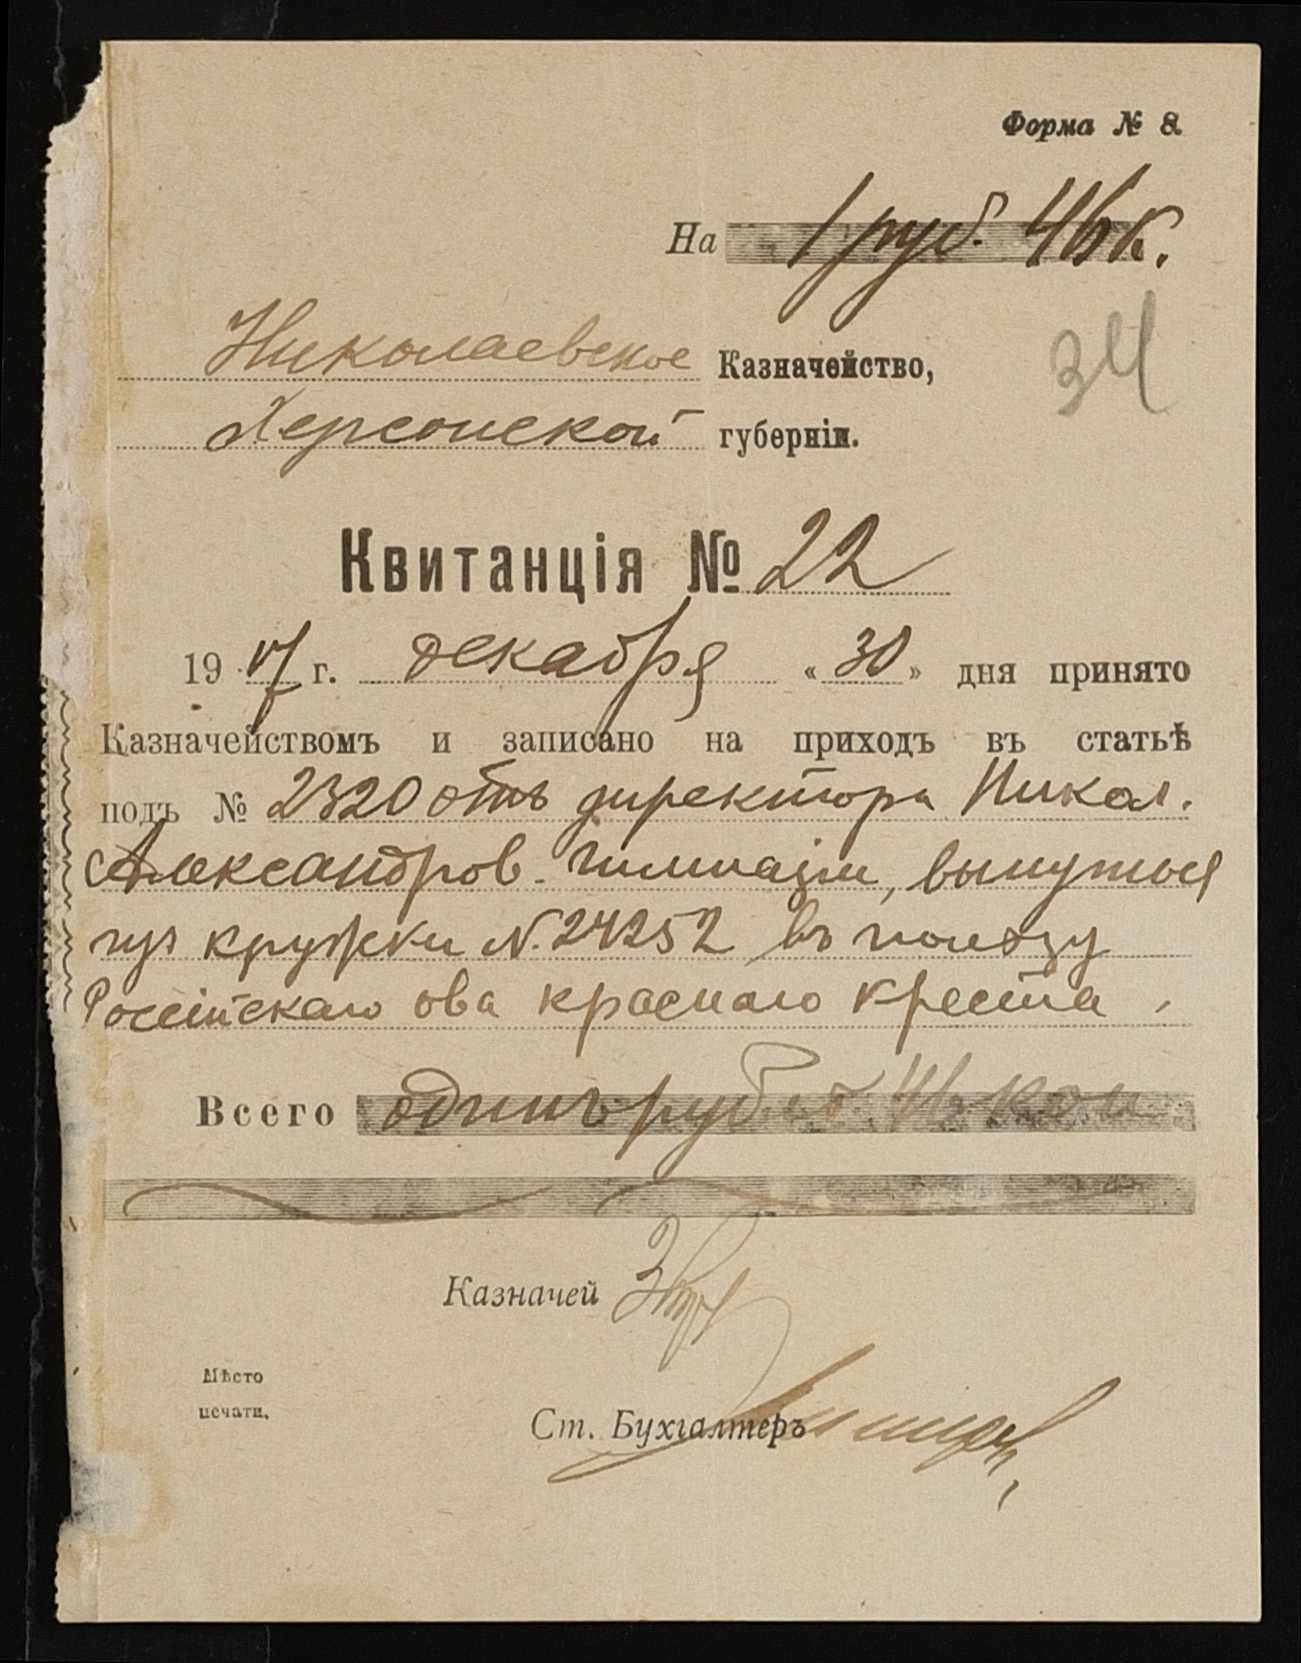 Форма № 8.
На 1 руб. 46 к.
34
Николаевское Казначейство,
Херсонской губерніи.
Квитанція № 22
1917 г. декабря «30» дня принято
Казначействомъ и записано на приходъ въ статьѣ
подъ № 2320 отъ директора Никол.
Александров. гимназіи, вынутые
изъ кружки N. 24252 въ пользу
Россійскаго ова краснаго креста.
Всего одинъ рубль 46 коп
Казначей
Мѣсто
печати.
Ст. Бухгалтеръ